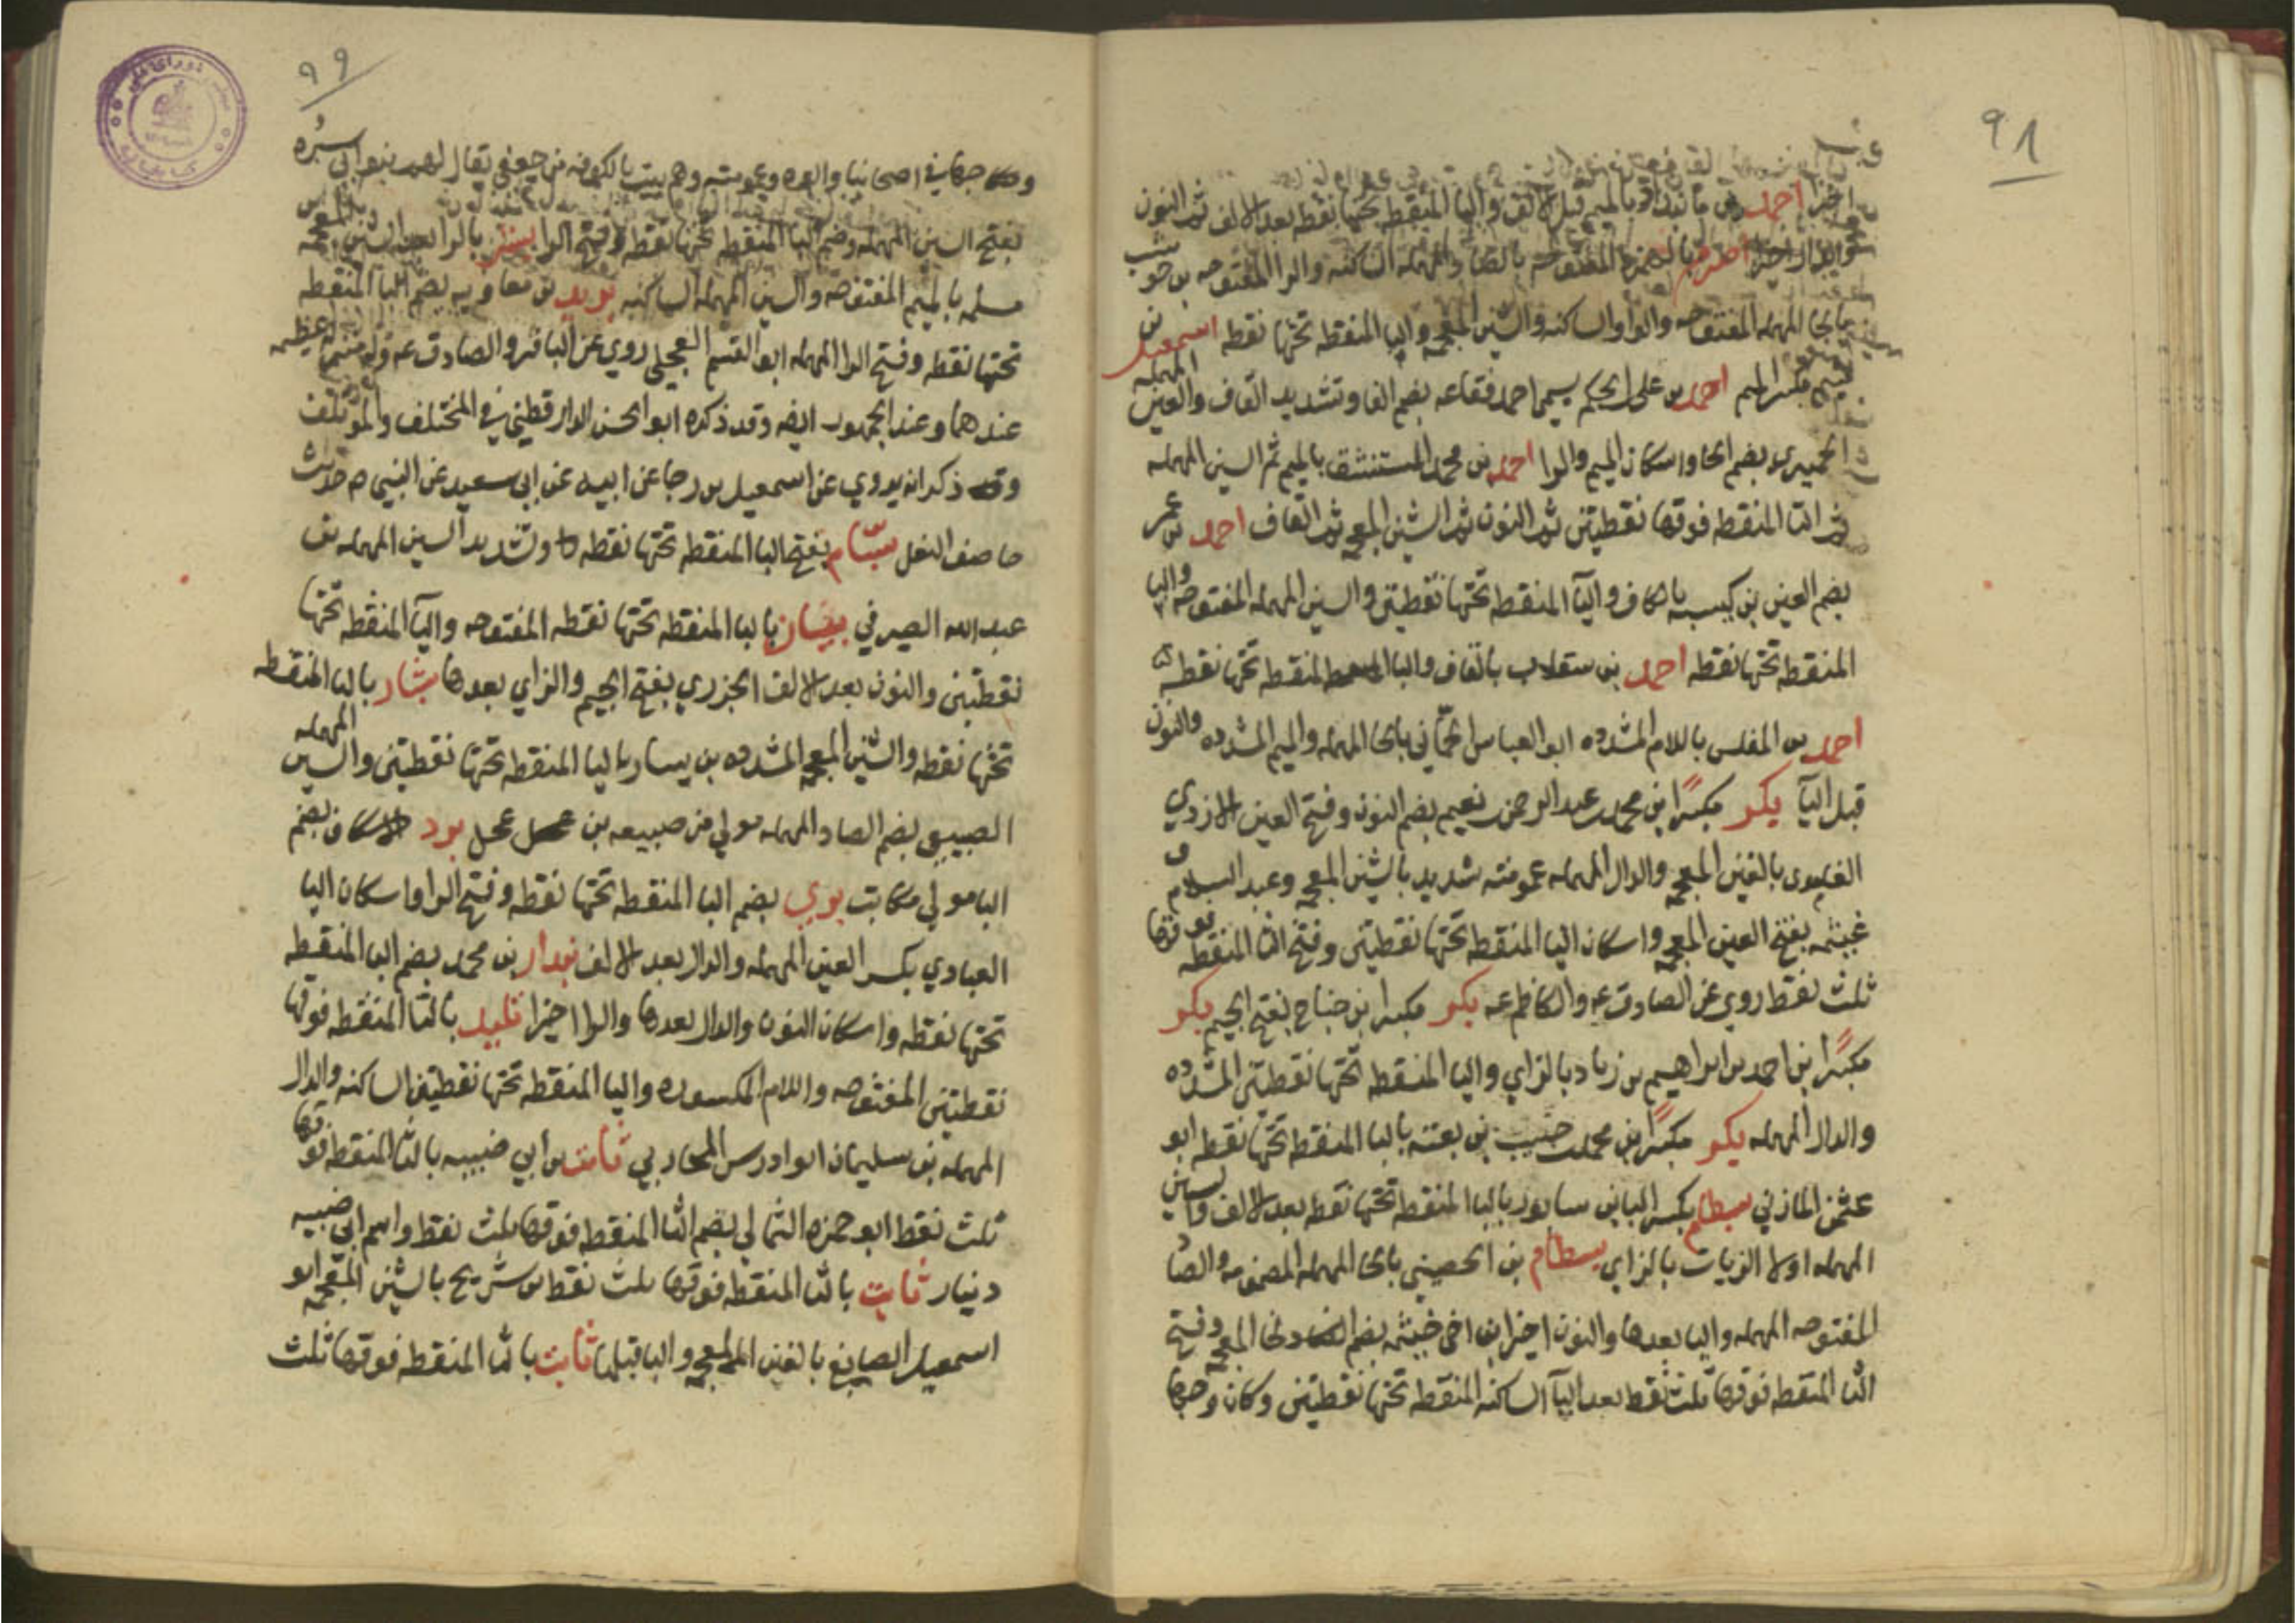 ٩٨
اخيرا احمد بن مابنداذ بالميم قبل الالف والبا المنقطه تحتها نقطه بعد الالف ثم النون
اصرم بالهمزه المفتوحه بالصاد المهمله الساكنه والرا المفتوحه بن حوشب
بالحا المهمله المفتوحه والواو الساكنه والشين المعجمه والبا المنقطه تحتها نقطه اسمعيل بن
بكسر الميم احمد بن على الحكم يسمى احمد فقاعه بضم الفا وتشديد القاف والعين المهمله
الحميرى بضم الحا واسكان الميم والرا احمد بن محمد المستنشق بالميم ثم السين المهمله
ثم التا المنقطه فوقها نقطيتن ثم النون ثم الشين المعجمه ثم القاف احمد بن عمر
بضم العين بن كيسبه بالكاف واليآ المنقطه تحتها نقطيتن والسين المهمله المفتوحه والبا
المنقطه تحتها نقطه احمد بن ستقلاب بالقاف والبا المنقطه تحتها نقطه
احمد بن المفلس باللام المشدده ابو العباس الحمّاني بالحا المهمله والميم المشدده والنون
قبل اليآ بكر مكبرًا بن محمد بن عبد الرحمن نعيم بضم النون وفتح العين الازدي
الغامدى بالغين المعجمه والدال المهمله عمومته شديد بالشين المعجمه وعبد السلام و
غيثمه بفتح الغين المعجمه واسكان اليا المنقطه تحتها نقطيتن وفتح الثا المنقطه فوقها
ثلث نقط روي عن الصادق عه والكاظم عه بكر مكبرا بن جناح بفتح الجيم بكر
مكبّرًا بن احمد بن ابراهيم بن زياد بالزاي واليا المنقطه تحتها نقطيتن المشدده
والدال المهمله بكر مكبّرًا بن محمد بن حبيب بن بقيه بالبا المنقطه تحتها نقطه ابو
عثمن المازني بسطام بكسر البا بن سابور بالبا المنقطه تحتها نقطه بعد الالف والسين
المهمله اولا الزيات بالزاي بسطام بن الحصيني بالحا المهمله المضمومه والصاد
المفتوحه المهمله واليا بعدها والنون اخيرا بن اخى خيثمه بفتح الخا المعجمه وفتح
الثا المنقطه فوقها ثلث نقط بعد اليآ الساكنه المنقطه تحتها نقطيتن وكان وجها
٩٩
وجها في اصحابنا وابوه وعمومته وهم بيت بالكوفه من جعفي يقال لهم بنو ابي سبره
بفتح السين المهمله وضم البا المنقطه تحتها نقطه وفتح الرا بشر بالرا بعد الشين المعجمه بن
مسلمه بالميم المفتوحه والسين المهمله الساكنه بريد بن معاويه بضم البا المنقطه
تحتها نقطه وفتح الرا المهمله ابو القسم العجلي روي عن الباقر والصادق عه وله منزله عظيمه
عندهما وعند الجمهور ايضه وقد ذكره ابو الحسن الدارقطني في المختلف والموتلف
وقد ذكر انه يروي عن اسمعيل بن رجا عن ابيه عن ابي سعيد عن النبي ص حديث
خاصف النعل بسّام بفتح البا المنقطه تحتها نقطه وتشديد السين المهمله بن
عبد الله الصيرفي بيان بالبا المنقطه تحتها نقطه المفتوحه واليآ المنقطه تحتها
نقطيتن والنون بعد الالف الجزري بفتح الجيم والزاي بعدها بشار بالبا المنقطه
تحتها نقطه والشين المعجمه المشدده بن يسار باليا المنقطه تحتها نقطيتن والسين المهمله
الضبيعى بضم الصاد المهمله مولي من ضبيعه بن عجل برد الاسكاف بضم
البا مولي مكاتب بري بضم البا المنقطه تحتها نقطه وفتح الرا واسكان اليا
العبادي بكسر العين المهمله والدال بعد الالف بندار بن محمد بضم البا المنقطه
تحتها نقطه واسكان النون والدال بعدها والرا اخيرا تليد بالتا المنقطه فوقها
نقطيتن المفتوحه واللام المكسوره واليا المنقطه تحتها نقطيتن الساكنه والدال
المهمله بن سليمان ابو ادرس المحاربي ثابت بن ابي ضبيبه بالثا المنقطه فوقها
ثلث نقط ابو حمزه الثمالي بضم الثا المنقطه فوقها ثلث نقط واسم ابي ضبيه
دينار ثابت بالثا المنقطه فوقها ثلث نقط بن شريح بالشين المعجمه ابو
اسمعيل الصايغ بالغين المعجمه واليا قبلها ثابت بالثا المنقطه فوقها ثلث